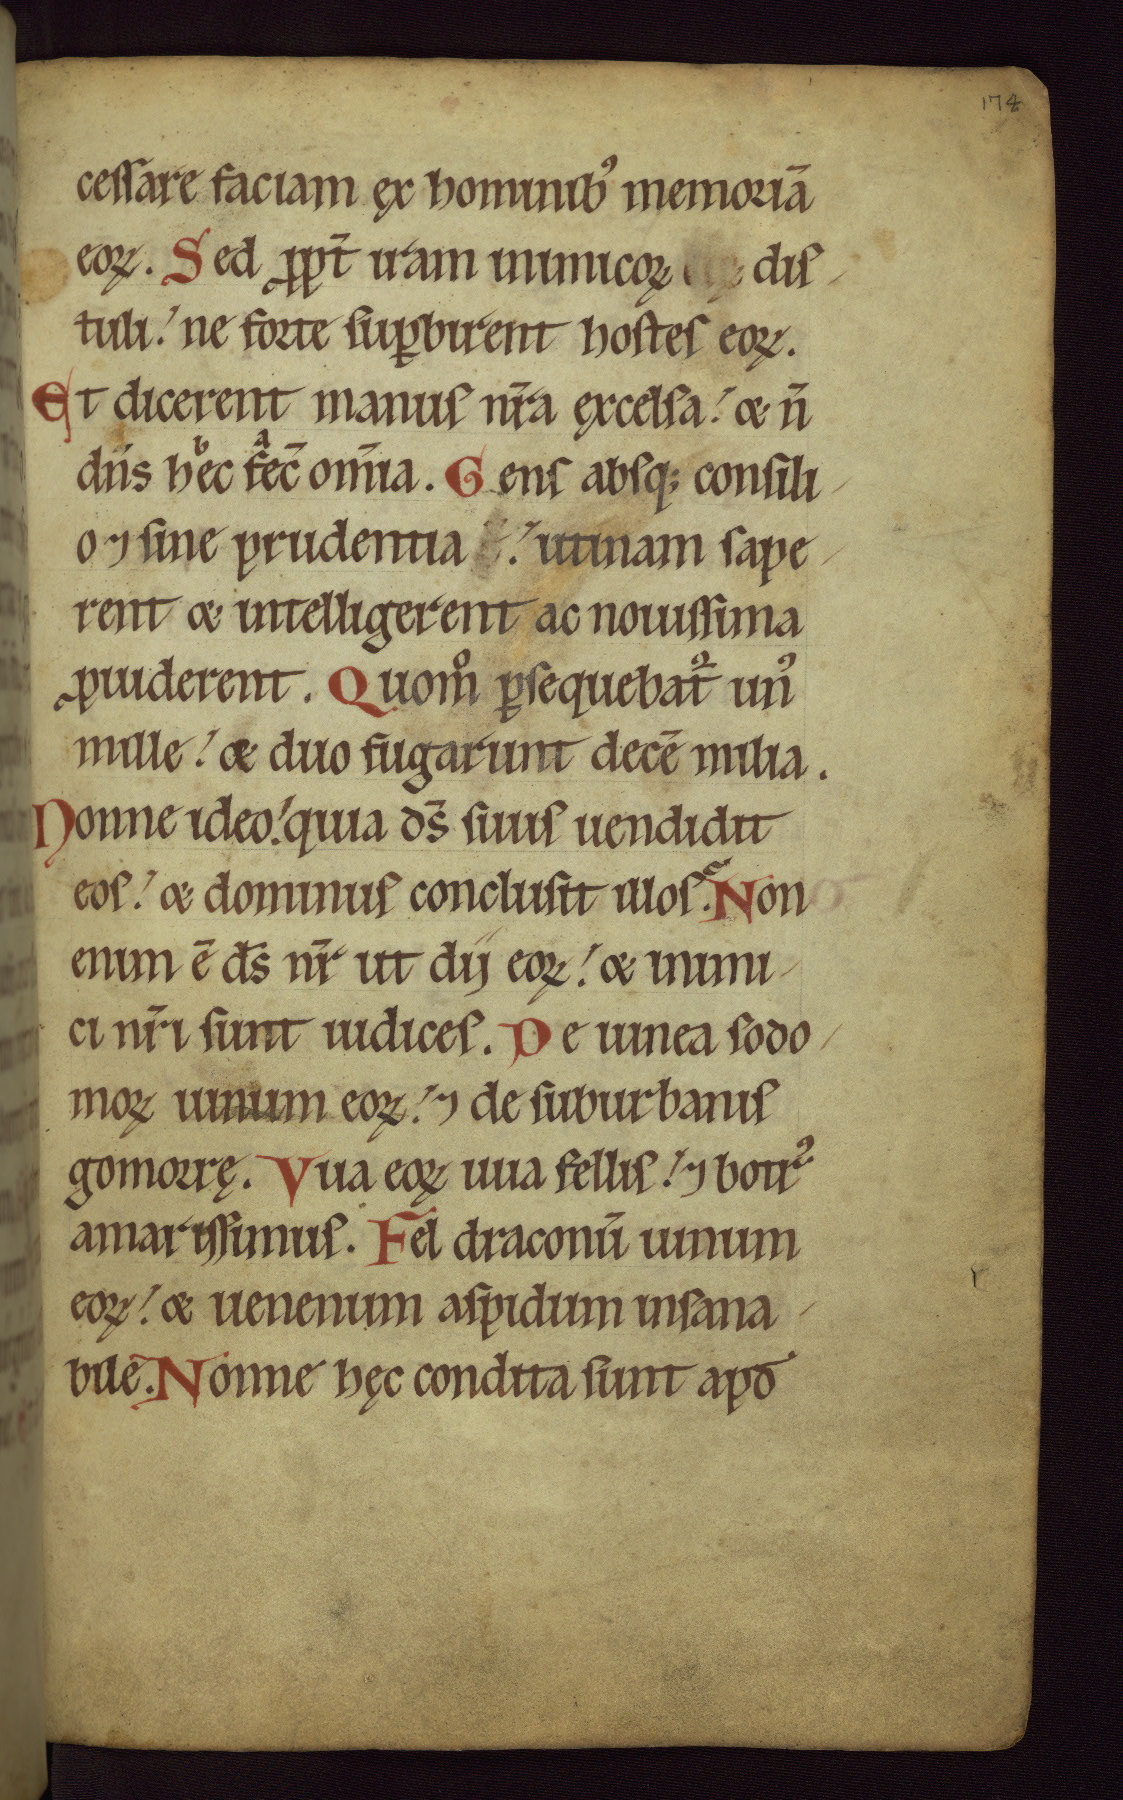 174
ceſſare faciam ęx hominib᾽ memoriā
eoꝝ. Sed ꝓpt̄ iram inimicoꝝ diſ
tuli: ne forte ſuꝑbirent hoſtes eoꝝ.
Et dicerent manus nr̄a ęxcelſa: & n̄
dn̄s hec fec̄ om̄ia. Gens abſq; conſili
o ⁊ ſine prudentia: utinam ſape
rent & intelligerent ac nouiſſima
ꝓuiderent. Quom̊ ꝑſequebat᷑ un᾽
mille: & duo fugarunt decē milia.
Nonne ideo: quia ds̄ ſuus uendidit
eoſ: & dominus concluſit illoſ. Non
enim ē ds̄ nr̄ ut dij eoꝝ: & inimi
ci nr̄i ſunt iudices. De uinea ſodo
moꝝ uinum eoꝝ: ⁊ de ſuburbanis
gomorrę. Vua eoꝝ uua fellis: ⁊ botr᾽
amariſſimus. Fel draconū uinum
eoꝝ: & uenenum aſpidum inſana
bile. Nonne hęc condita ſunt apd̄